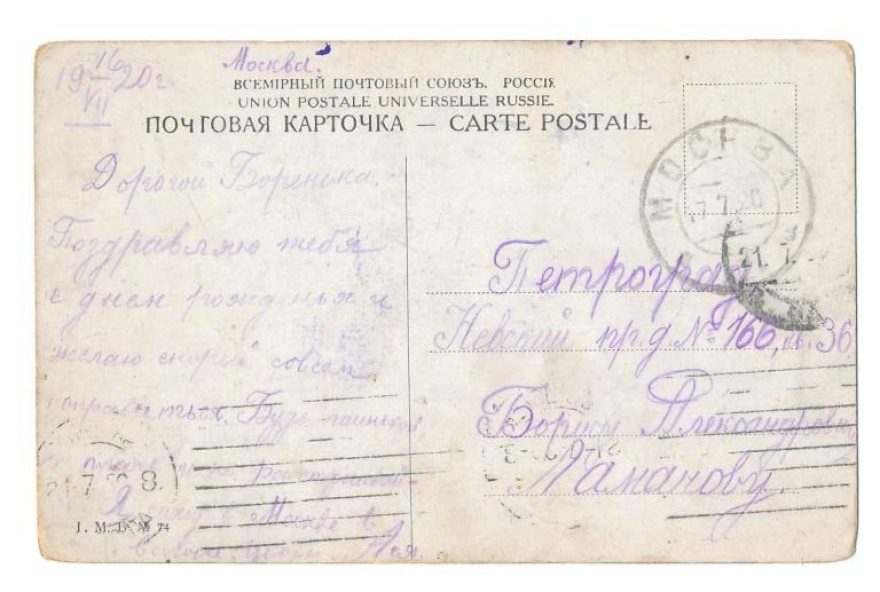 19 16/VII 20 г. Москва.
ВСЕМІРНЫЙ ПОЧТОВЫЙ СОЮЗЪ. РОССІЯ
UNION POSTALE UNIVERSELLE RUSSIE.
ПОЧТОВАЯ КАРТОЧКА — CARTE POSTALE
МОСКВА
17.7.20
21.7
Дорогой Боренька.
Поздравляю тебя
с днем рожденья и
желаю скорей совсем
поправиться. Будь
Я в Москве в
Ася
I. M. B. № 74
7 8.
Петроград
Невский пр. д. № 166, к. 36
Борису Александровичу